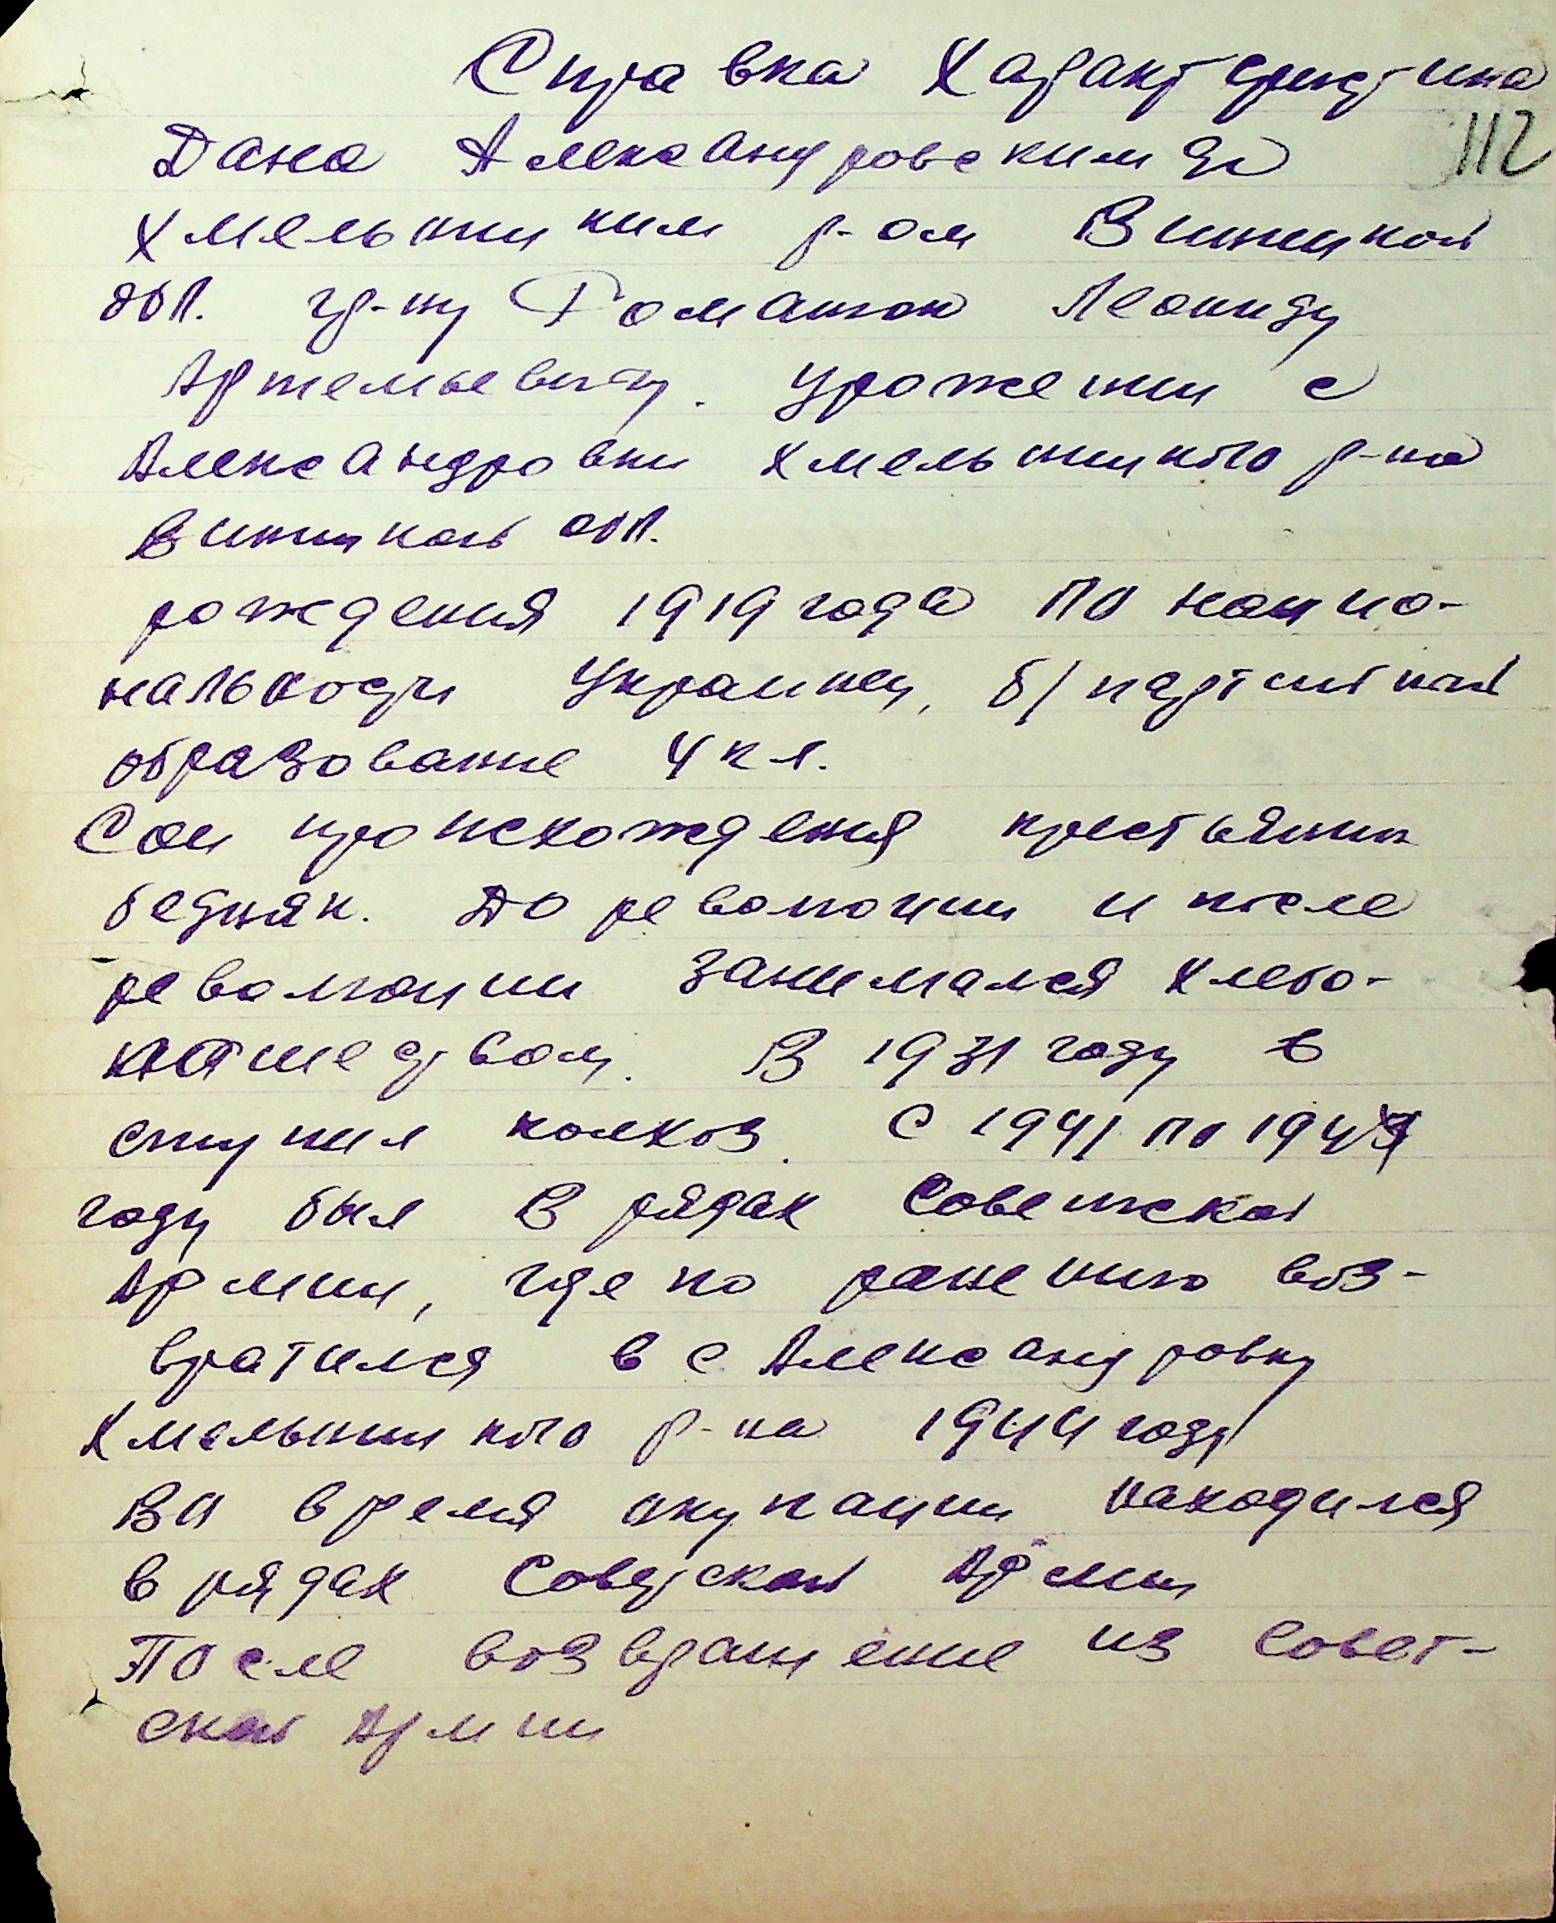 Справка Характеристика
112
Дана Александровским
Хмельницким р-ом Виницкой
обл. гр-ну Романюк Леониду
Артемьевичу. Уроженин с
Александровки Хмельницкого р-на
Виницкой обл.
рождения 1919 года по нацио-
нальности Украинец, б/партийный
образование 4 кл.
Соц происхождения крестьянин
бедняк. До революции и после
революции занимался хлебо-
пашеством. В 1931 году в
ступил колхоз. С 1941 по 1943
году был в рядах Советской
Армии, где по ранению воз-
вратился в с Александровку
Хмельницкого р-на 1944 году
Во время окупации находился
в рядах Советской Армии
После возвращение из Совет-
ской Армии